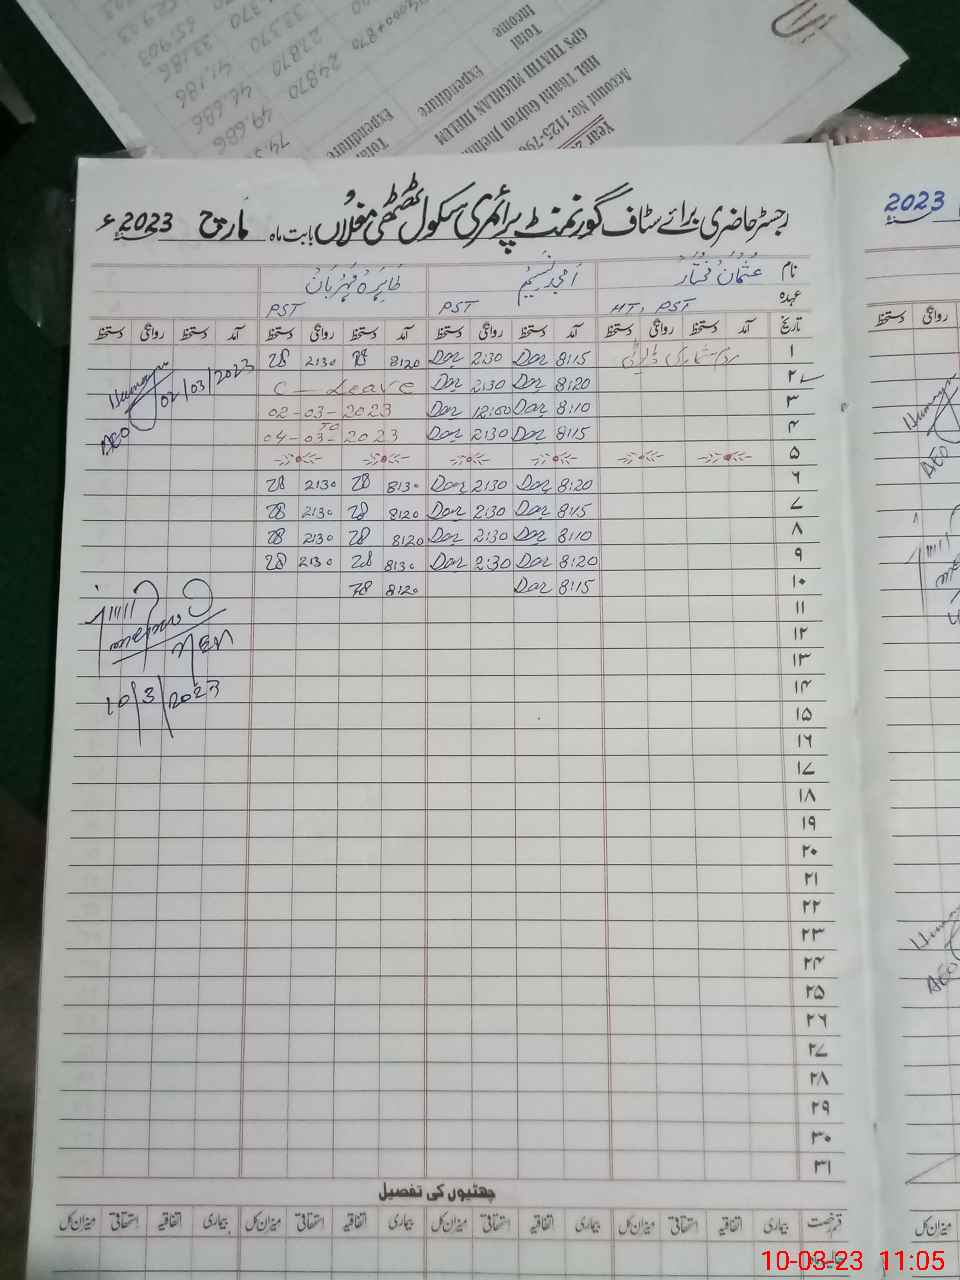 Total Income
Total Expenditure
Expenditure
Year
Account No: 1125-790
HBL Thathi Gujran Jhelum
GPS THATHI MUGHLAN JHELUM
74,5
49,686
46,686
41,186
33,186
24,870
27,870
33,370
65,903
رجسٹر حاضری برائے سٹاف گورنمنٹ پرائمری سکول ٹھٹھی مغلاں بابت ماہ مارچ 2023ء
2023
نام عثمان مختار امجد نسیم طاہرہ مہربان
عہدہ HT, PST PST PST
تاریخ آمد دستخط روانگی دستخط آمد دستخط روانگی دستخط آمد دستخط روانگی دستخط آمد دستخط روانگی دستخط
۱ مردم شماری ڈیوٹی 8:15 Dar 2:30 Dar 8:20 2:30
۲ 8:20 Dar 2:30 Dar C-Leave
۳ 8:10 Dar 12:00 Dar 02-03-2023
۴ 8:15 Dar 2:30 Dar TO 04-03-2023
۵
۶ 8:20 Dar 2:30 Dar 8:30 2:30
۷ 8:15 Dar 2:30 Dar 8:20 2:30
۸ 8:10 Dar 2:30 Dar 8:20 2:30
۹ 8:20 Dar 2:30 Dar 8:30 2:30
۱۰ 8:15 Dar 8:20
۱۱
۱۲
۱۳
۱۴
۱۵
۱۶
۱۷
۱۸
۱۹
۲۰
۲۱
۲۲
۲۳
۲۴
۲۵
۲۶
۲۷
۲۸
۲۹
۳۰
۳۱
Humayun
02/03/2023
AEO
10/3/2023
چھٹیوں کی تفصیل
قسم رخصت بیماری اتفاقیہ استحقاقی میزان کل بیماری اتفاقیہ استحقاقی میزان کل بیماری اتفاقیہ استحقاقی میزان کل بیماری اتفاقیہ استحقاقی میزان کل
روانگی دستخط
AEO
AEO
میزان کل
10-03-23 11:05